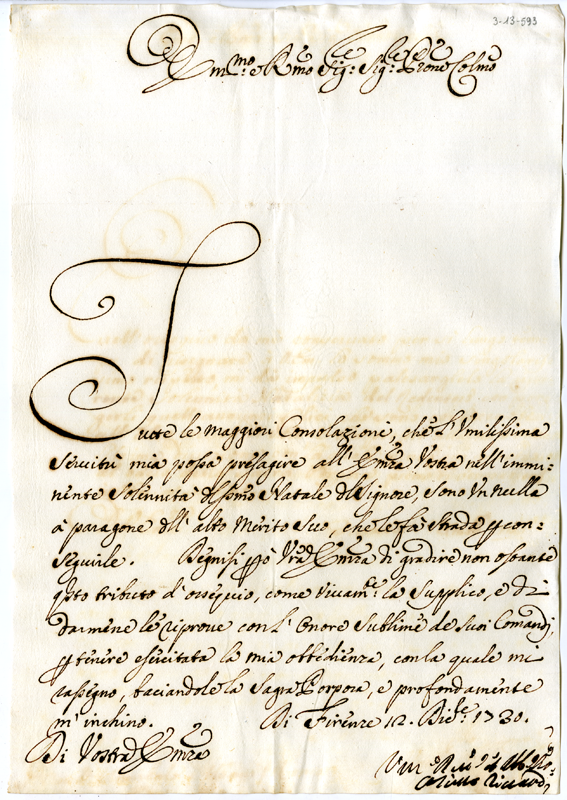 3-13-593
Em.mo e R.mo Sig.re Sig.re P.rone Col.mo
Tutte le maggiori Consolazioni, che l'Umilissima
servitù mia possa presagire all'Em.za Vostra nell'immi-
nente solennità del S.mo Natale del Signore, sono un nulla
a paragone dell'alto Merito Suo, che le fa strada p con-
seguirle. Degnisi p.ò V.ra Em.za di gradire non ostante
q.sto tributo d'ossequio, come vivam.te la supplico, e di
darmene le riprove con l'Onore sublime de suoi Comandi,
p tenere esercitata la mia obbedienza, con la quale mi
rassegno, baciandole la Sagra Porpora, e profondamente
m'inchino. Di Firenze 12. Dic.re 1730.
Di Vostra Em.za